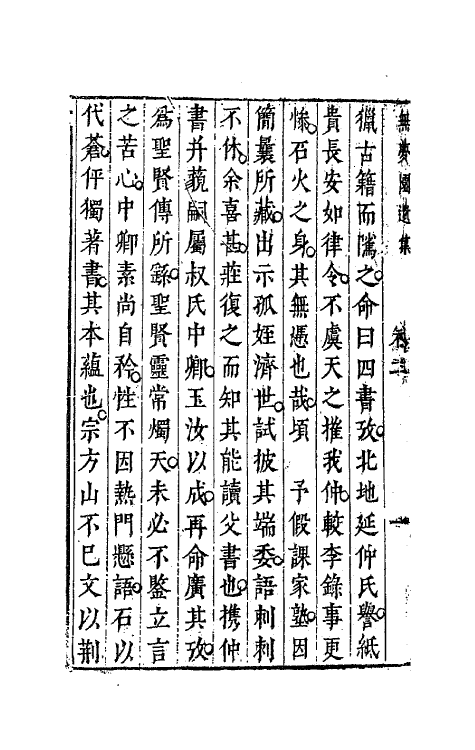 無夢園遺集 卷三 一
獵古籍而隲之命曰四書攷北地延仲氏譽紙
貴長安如律令不虞天之摧我仲較李錄事更
慘石火之身其無憑也哉頃 予假課家塾因
簡曩所藏出示孤姪濟世試披其端委語刺刺
不休余喜甚莊復之而知其能讀父書也携仲
書并藐嗣屬叔氏中卿玉汝以成再命廣其攷
爲聖賢傳所繇聖賢靈常燭天未必不鑒立言
之苦心中卿素尚自矜性不因熱門懸語石以
代蒼伻獨著書其本蘊也宗方山不已文以荆